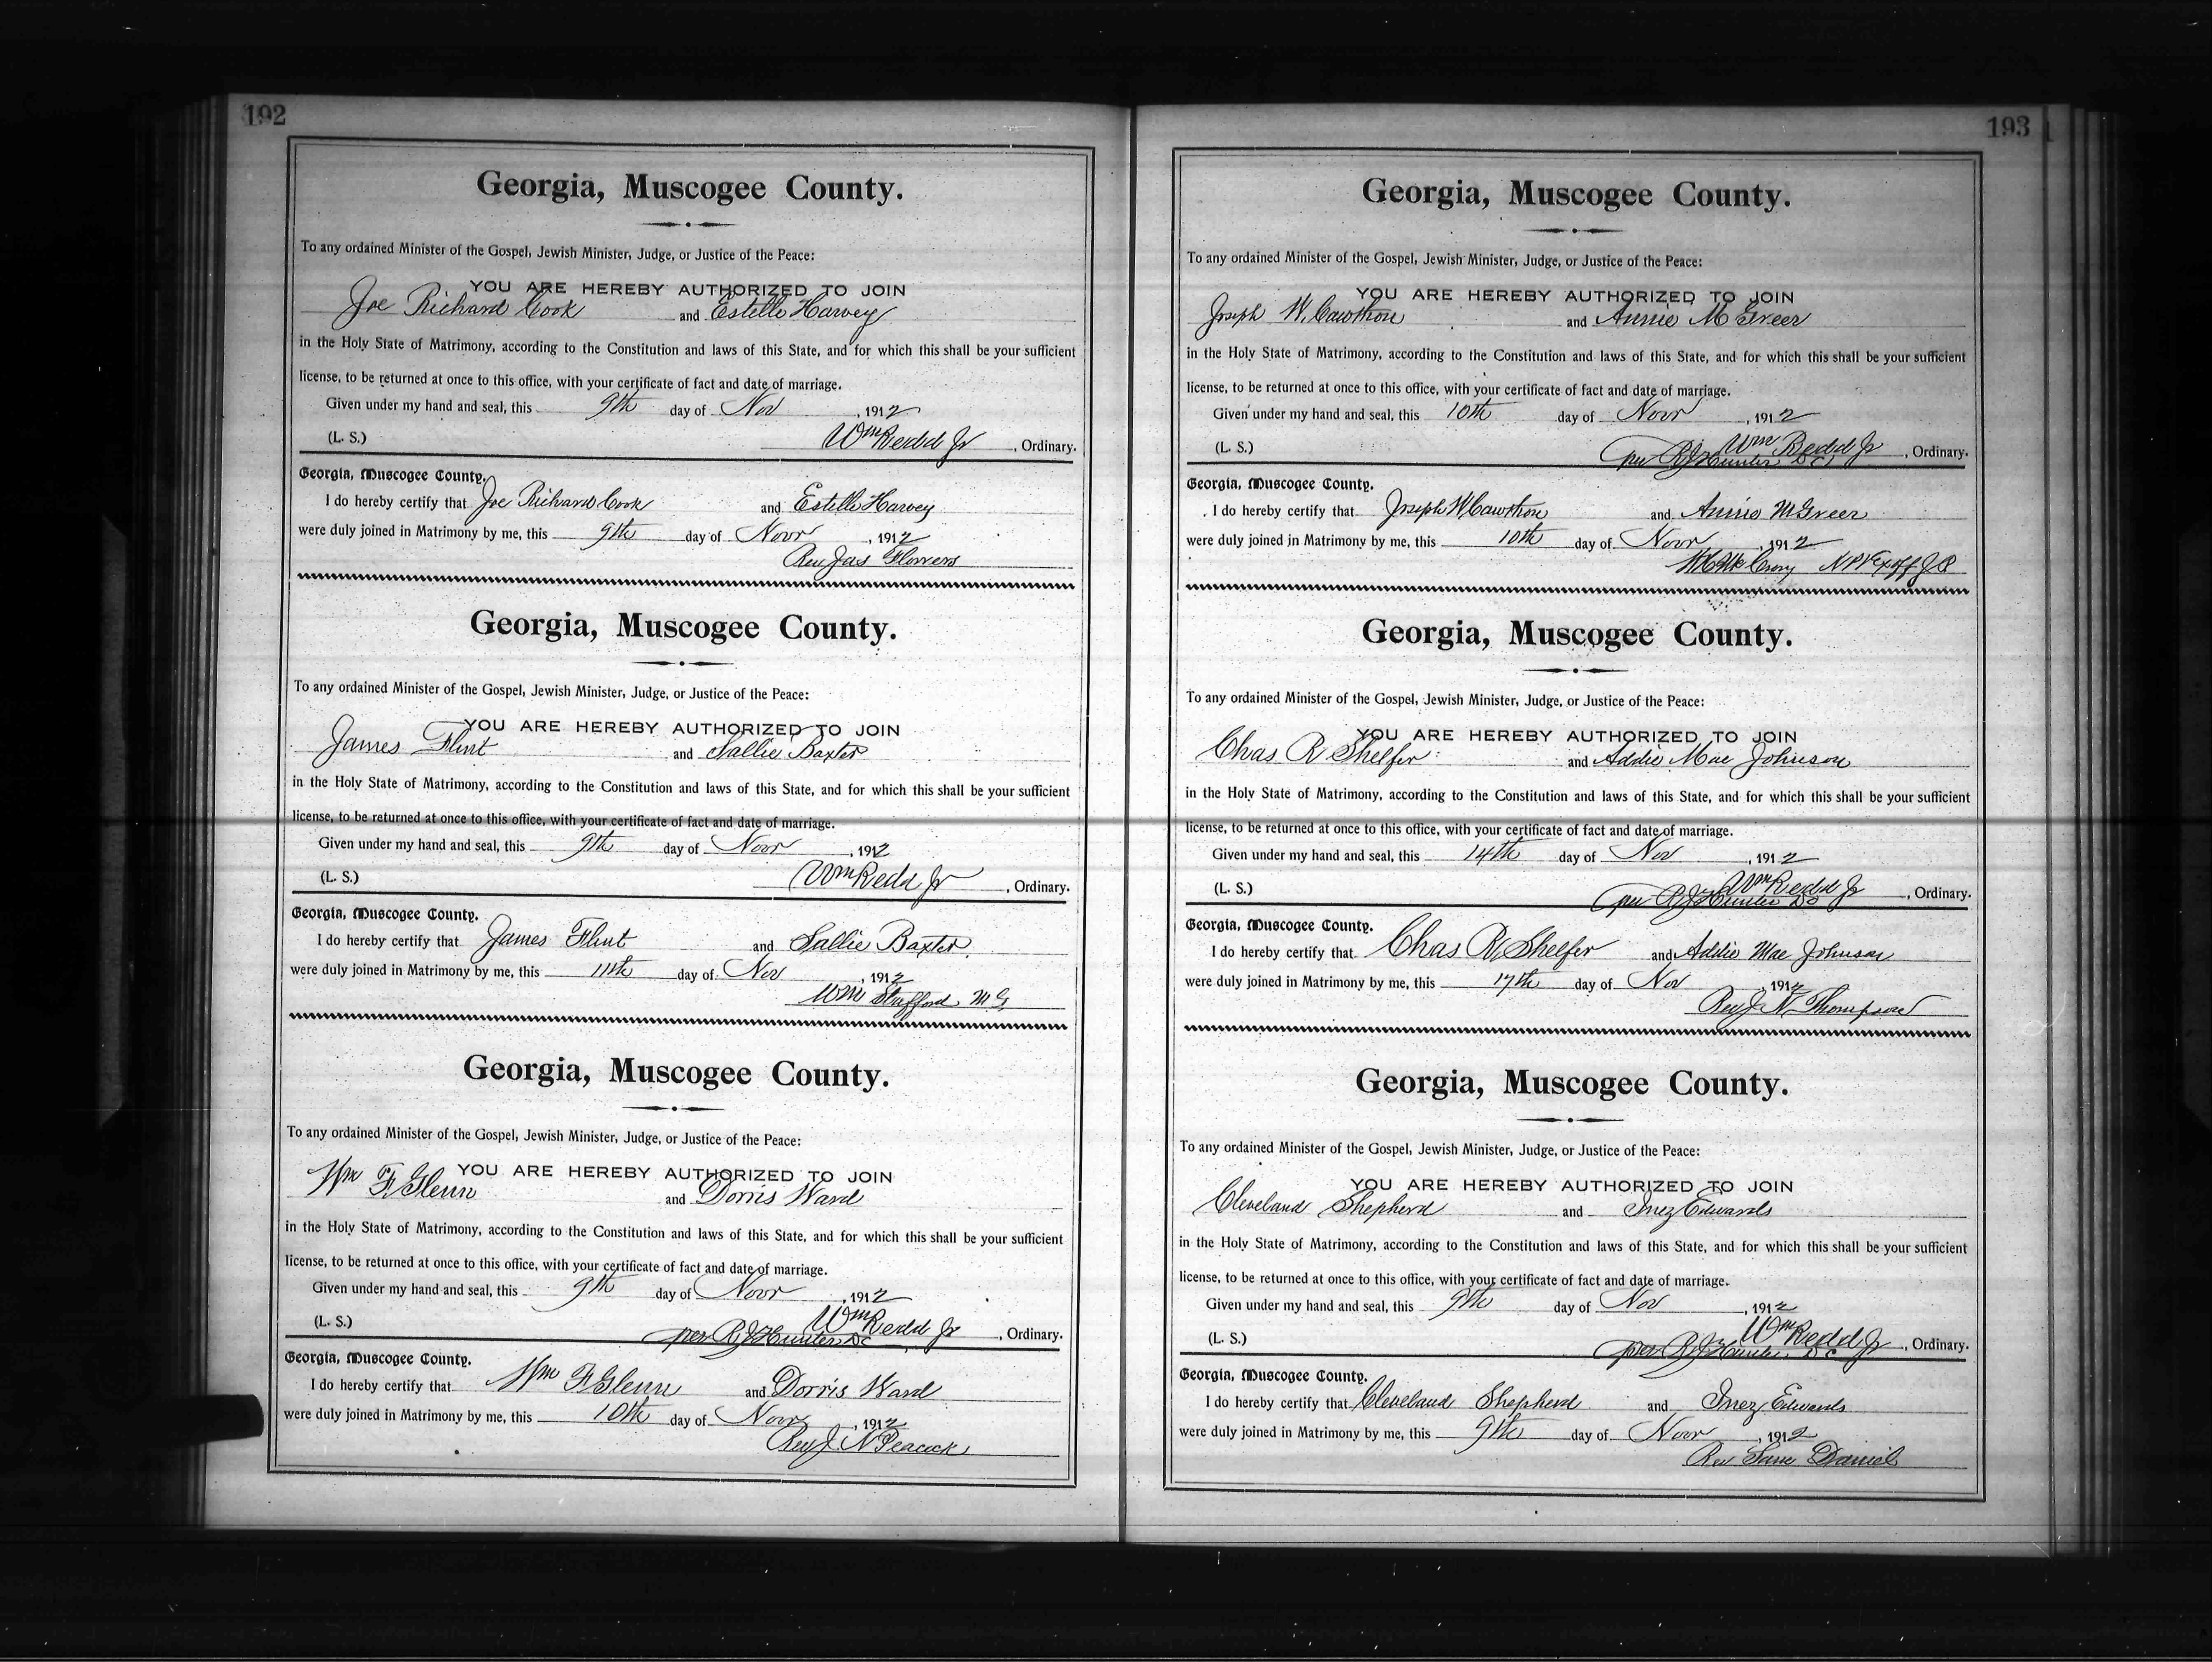 192
Georgia, Muscogee County.
To any ordained Minister of the Gospel, Jewish Minister, Judge, or Justice of the Peace:
YOU ARE HEREBY AUTHORIZED TO JOIN
Joe Richard Cook and Estelle Harvey
in the Holy State of Matrimony, according to the Constitution and laws of this State, and for which this shall be your sufficient
license, to be returned at once to this office, with your certificate of fact and date of marriage.
Given under my hand and seal, this 9th day of Nov, 1912
(L. S.) Wm Redd Jr, Ordinary.
Georgia, Muscogee County.
I do hereby certify that Joe Richard Cook and Estelle Harvey
were duly joined in Matrimony by me, this 9th day of Novr, 1912
Rev Jas Flowers
Georgia, Muscogee County.
To any ordained Minister of the Gospel, Jewish Minister, Judge, or Justice of the Peace:
YOU ARE HEREBY AUTHORIZED TO JOIN
James Flint and Sallie Baxter
in the Holy State of Matrimony, according to the Constitution and laws of this State, and for which this shall be your sufficient
license, to be returned at once to this office, with your certificate of fact and date of marriage.
Given under my hand and seal, this 9th day of Novr, 1912
(L. S.) Wm Redd Jr, Ordinary.
Georgia, Muscogee County.
I do hereby certify that James Flint and Sallie Baxter.
were duly joined in Matrimony by me, this 11th day of Nov, 1912
Wm Stafford, M G
Georgia, Muscogee County.
To any ordained Minister of the Gospel, Jewish Minister, Judge, or Justice of the Peace:
YOU ARE HEREBY AUTHORIZED TO JOIN
Wm F. Glenn and Dorris Ward
in the Holy State of Matrimony, according to the Constitution and laws of this State, and for which this shall be your sufficient
license, to be returned at once to this office, with your certificate of fact and date of marriage.
Given under my hand and seal, this 9th day of Novr, 1912
Wm Redd Jr
(L. S.) per R J Hunter DC, Ordinary.
Georgia, Muscogee County.
I do hereby certify that Wm F Glenn and Dorris Ward
were duly joined in Matrimony by me, this 10th day of Novr, 1912
Rev J N Peacock
193
Georgia, Muscogee County.
To any ordained Minister of the Gospel, Jewish Minister, Judge, or Justice of the Peace:
YOU ARE HEREBY AUTHORIZED TO JOIN
Joseph W. Cawthon and Annie M Greer
in the Holy State of Matrimony, according to the Constitution and laws of this State, and for which this shall be your sufficient
license, to be returned at once to this office, with your certificate of fact and date of marriage.
Given under my hand and seal, this 10th day of Novr, 1912
Wm Redd Jr
(L. S.) per R J Hunter DC, Ordinary.
Georgia, Muscogee County.
I do hereby certify that Joseph W Cawthon and Annie M Greer
were duly joined in Matrimony by me, this 10th day of Novr, 1912
NP & Ex off J P
Georgia, Muscogee County.
To any ordained Minister of the Gospel, Jewish Minister, Judge, or Justice of the Peace:
YOU ARE HEREBY AUTHORIZED TO JOIN
Chas R Shelfer and Addie Mae Johnson
in the Holy State of Matrimony, according to the Constitution and laws of this State, and for which this shall be your sufficient
license, to be returned at once to this office, with your certificate of fact and date of marriage.
Given under my hand and seal, this 14th day of Nov, 1912
Wm Redd Jr
(L. S.) per R J Hunter DC, Ordinary.
Georgia, Muscogee County.
I do hereby certify that Chas R. Shelfer and Addie Mae Johnson
were duly joined in Matrimony by me, this 17th day of Nov, 1912
Rev J. N. Thompson
Georgia, Muscogee County.
To any ordained Minister of the Gospel, Jewish Minister, Judge, or Justice of the Peace:
YOU ARE HEREBY AUTHORIZED TO JOIN
Cleveland Shepherd and Inez Edwards
in the Holy State of Matrimony, according to the Constitution and laws of this State, and for which this shall be your sufficient
license, to be returned at once to this office, with your certificate of fact and date of marriage.
Given under my hand and seal, this 9th day of Nov, 1912
Wm Redd Jr
(L. S.) per R J Hunter DC, Ordinary.
Georgia, Muscogee County.
I do hereby certify that Cleveland Shepherd and Inez Edwards
were duly joined in Matrimony by me, this 9th day of Novr, 1912
Rev Daniel